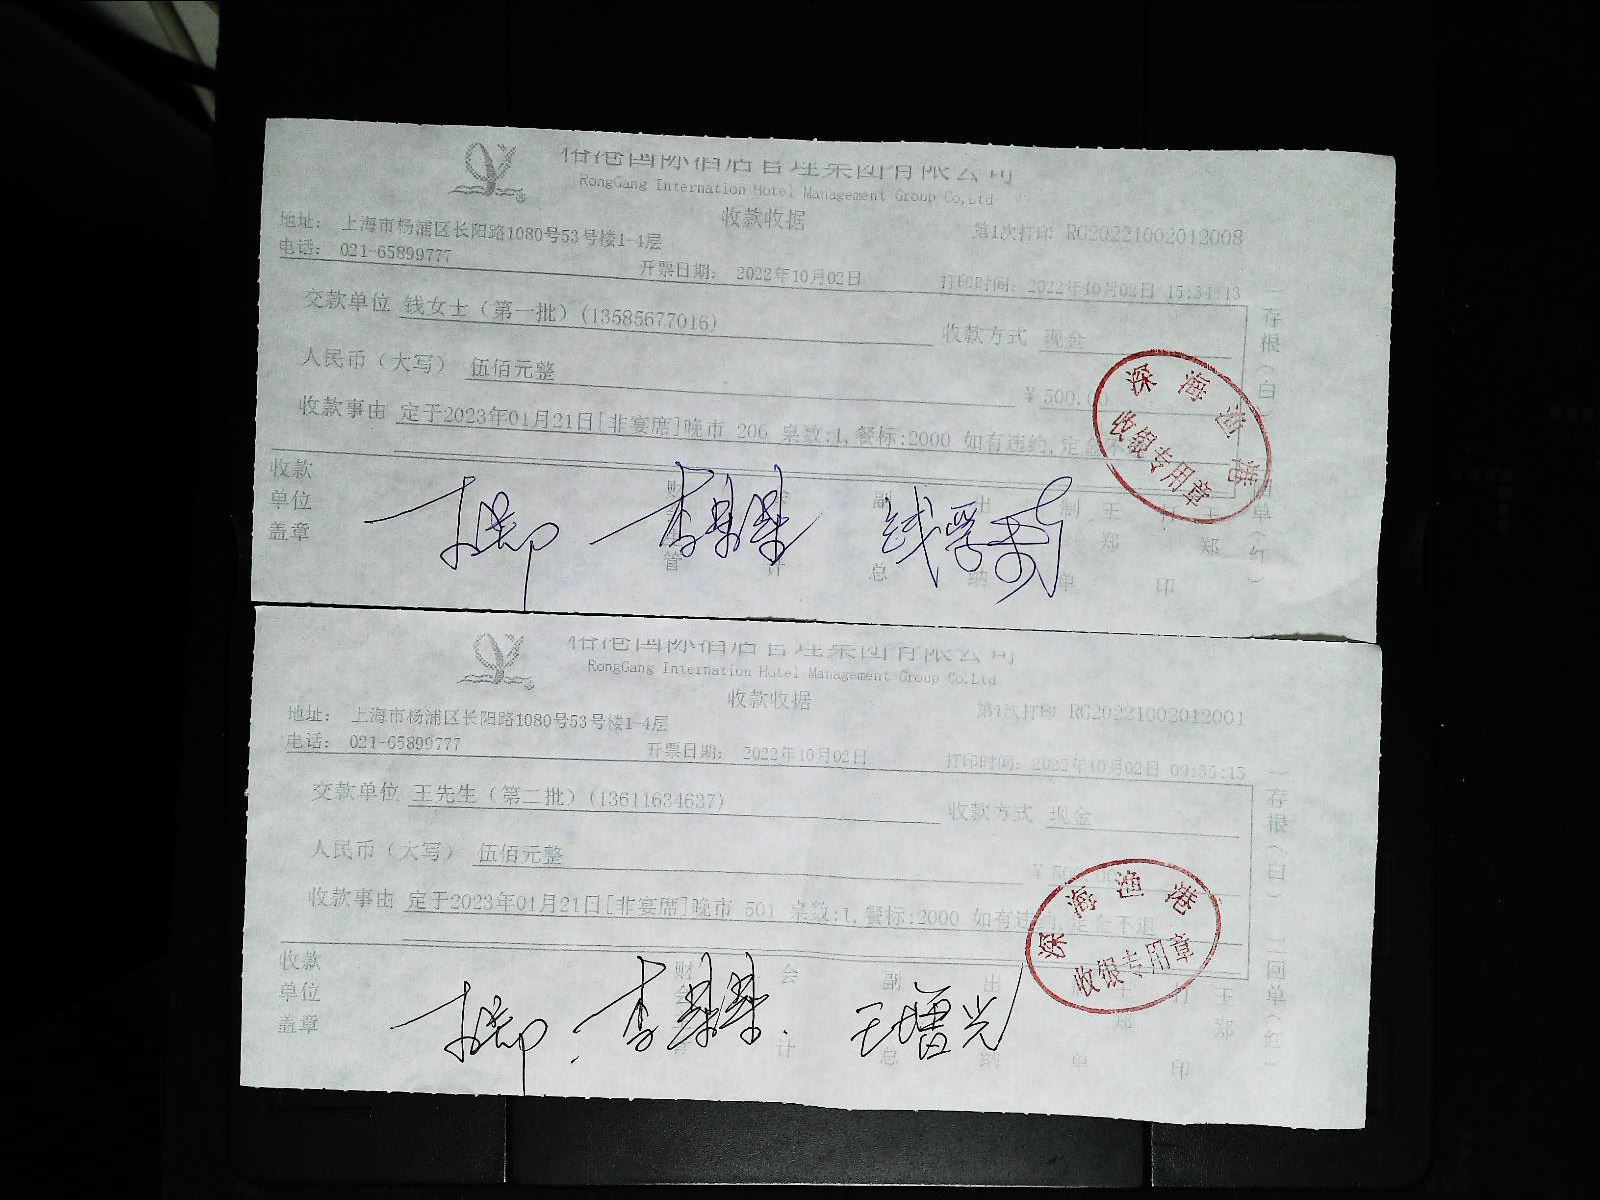 裕港国际酒店管理集团有限公司
RongGang Internation Hotel Management Group Co,Ltd
收款收据
地址： 上海市杨浦区长阳路1080号53号楼1-4层
第1次打印 RG20221002012008
电话： 021-65899777
开票日期： 2022年10月02日
打印时间：2022年10月02日 15:34:13
交款单位 钱女士（第一批）(13585677016)
收款方式 现金
人民币（大写） 伍佰元整
¥ 500.
收款事由 定于2023年01月21日[非宴席]晚市 206 桌数:1,餐标:2000 如有违约,定金不
收款
单位
盖章
存根（白）
单（红）
深海渔港
收银专用章
裕港国际酒店管理集团有限公司
RongGang Internation Hotel Management Group Co,Ltd
收款收据
地址： 上海市杨浦区长阳路1080号53号楼1-4层
第1次打印 RG20221002012001
电话： 021-65899777
开票日期： 2022年10月02日
打印时间：2022年10月02日 09:35:15
交款单位 王先生（第二批）(13611634637)
收款方式 现金
人民币（大写） 伍佰元整
收款事由 定于2023年01月21日[非宴席]晚市 501 桌数:1,餐标:2000 如有违 定金不退
收款
单位
盖章
存根（白）
二回单（红）
深海渔港
收银专用章